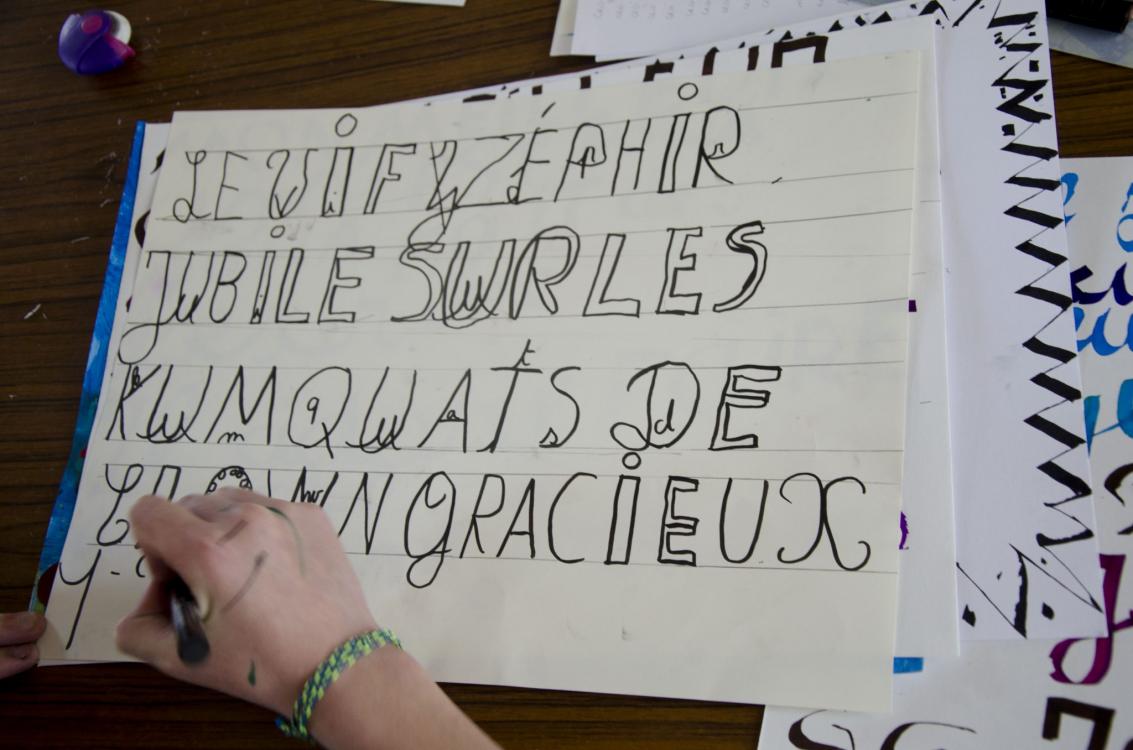 LE VIF YZÉPHIR
JUBILE SUR LES
KUMQUATS DE
CLOWN GRACIEUX